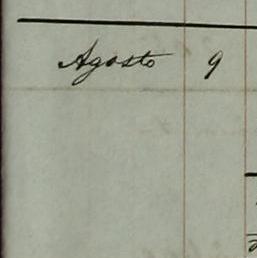 Agosto 9